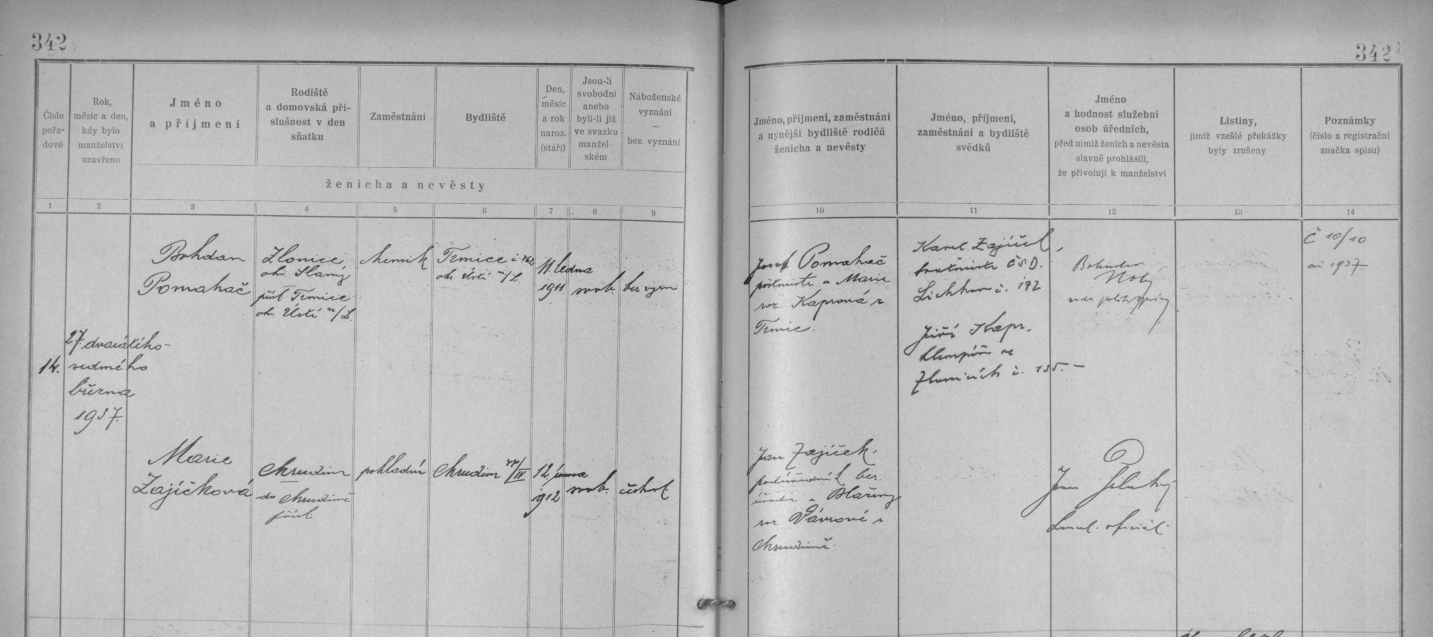 342
342
Číslo
pořa-
dové
Rok,
měsíc a den,
kdy bylo
manželství
uzavřeno
Jméno
a příjmení
Rodiště
a domovská pří-
slušnost v den
sňatku
Zaměstnání
Bydliště
Den,
měsíc
a rok
naroz.
(stáří)
Jsou-li
svobodni
anebo
byli-li již
ve svazku
manžel-
ském
Náboženské
vyznání
–
bez vyznání
ženicha a nevěsty
Jméno, příjmení, zaměstnání
a nynější bydliště rodičů
ženicha a nevěsty
Jméno, příjmení,
zaměstnání a bydliště
svědků
Jméno
a hodnost služební
osob úředních,
před nimiž ženich a nevěsta
slavně prohlásili,
že přivolují k manželství
Listiny,
jimiž vzešlé překážky
byly zrušeny
Poznámky
(číslo a registrační
značka spisu)
1 2 3 4 5 6 7 8 9 10 11 12 13 14
14.
27 dvacátého-
sedmého
března
1937.
Bohdan
Pomahač
Zlonice
ok. Slaný
přísl. Trmice
ok. Ústí n/L.
chemik
Trmice č.
ok. Ústí n/L.
11 ledna
1911
svob.
bez vyzn
Josef Pomahač
a Marie
roz. Kaprová z
Trmic.
Karel Zajíček,
ČSD.
č. 172
Jiří Kapr,
klempíř ve
Zlonicích č. 135. –
Bohuslav
č 10/10
ai 1937.
Marie
Zajíčková
Chrudim
do Chrudimě
přísl.
pokladní
Chrudim /IV
12 února
1912
svob.
čsl.
Jan Zajíček,
roz. Vávrové z
Chrudimě.
Jan